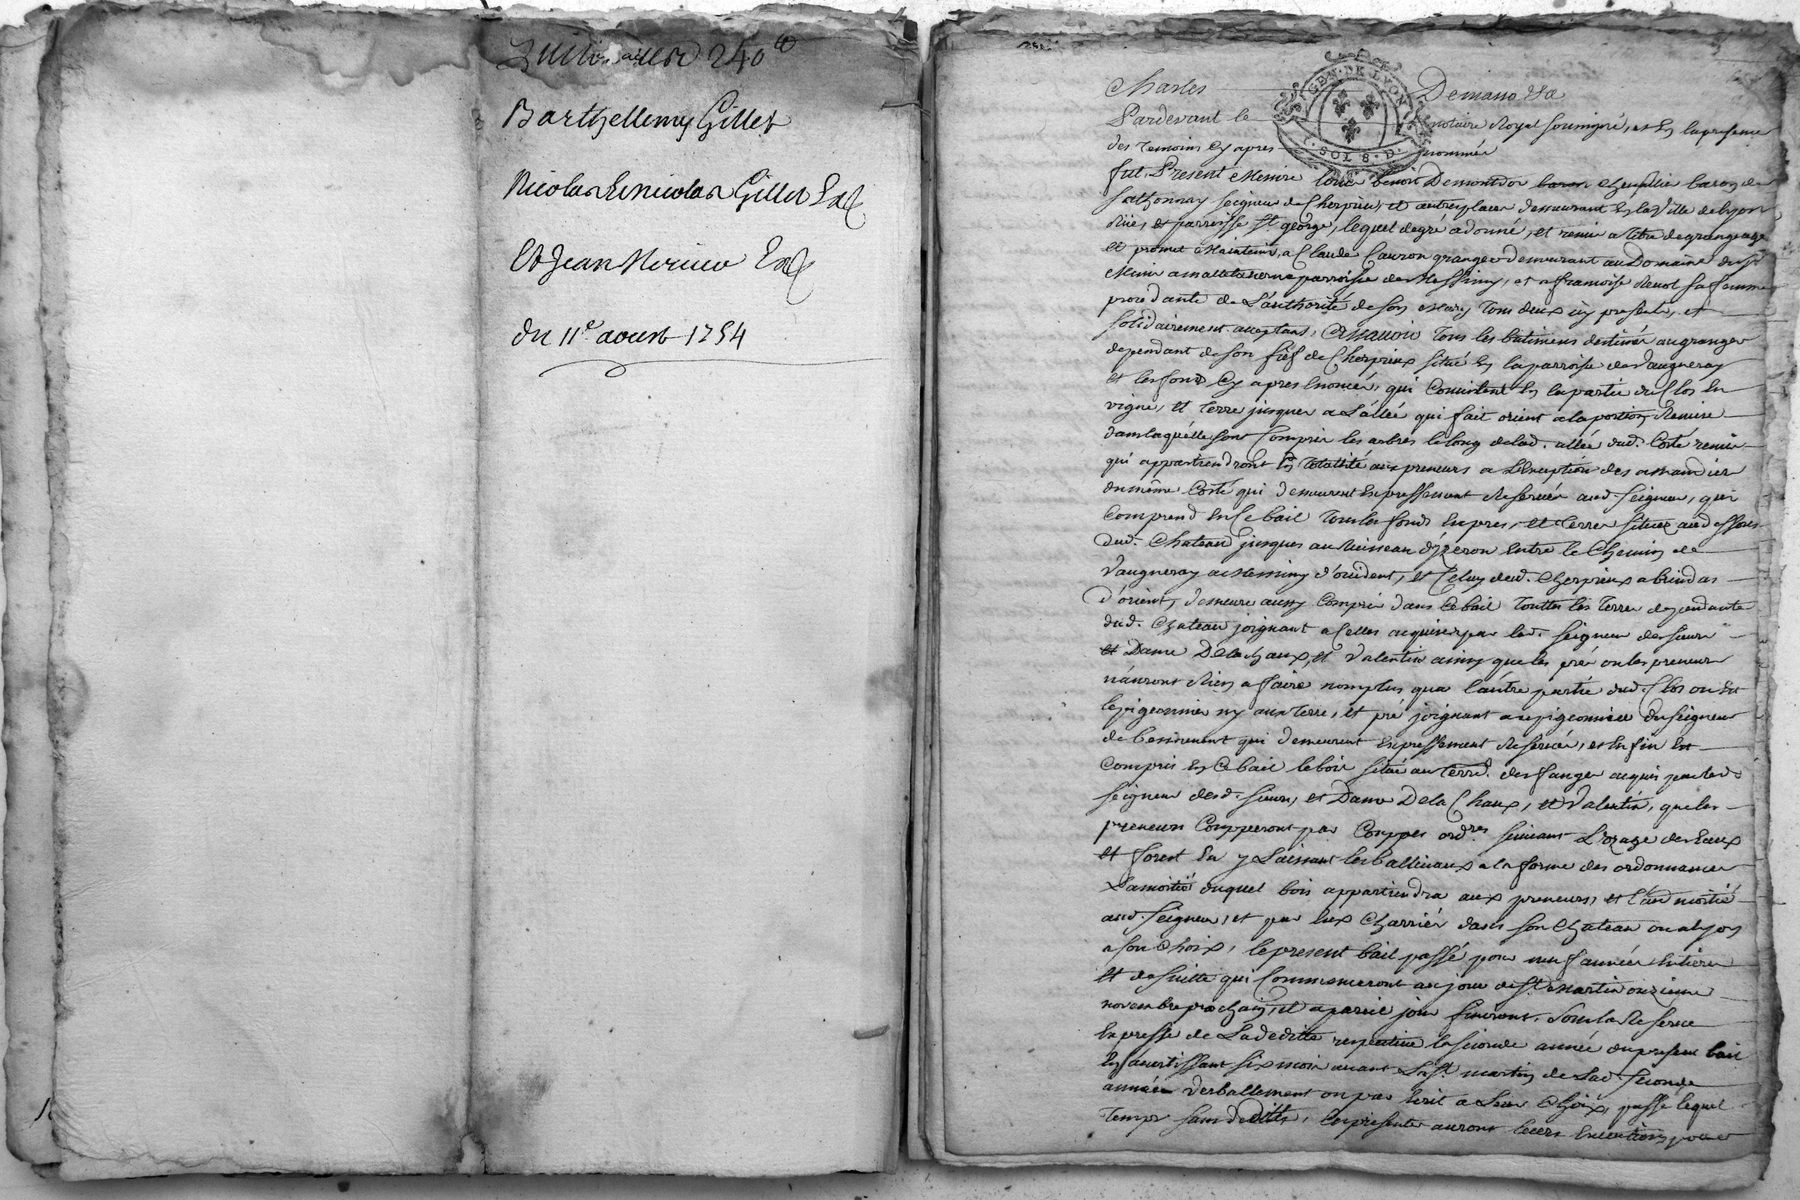 240
Barthellemy Gillet
Nicolas & nicolas Gillet
Et Jean
du 11e aoust 1754
GEN. DE LYON
SOL 8 D.
Charles
Pardevant le notaire Royal soussigné, et en la presence
des temoins cy apres nommés
fut Present Messire benoit Demontdor baron chevallier baron de
seigneur de Cherpieux et autres places demeurant en la Ville de Lyon
et parroisse St george, lequel de gré a donné, et remis a titre de grangeage
et promet Maintenir, a Claude granger demeurant au Domaine dud
parroisse de Messimy, et a françoise sa femme
procedante de L'authorité de son Mary tous deux icy presents, et
solidairement acceptans, Assavoir Tous les batimens destinés au granger
dependant de son fief de Cherpieux situé en la parroisse de Vaugneray
et les fonds Cy apres, qui Consistent en la partie du Clos en
vigne, et terre jusques a L'allée qui fait orient a la portion
dans laquelle sont Compris les arbres le long de lad. allée dud. Costé
qui appartiendront en totalité aux preneurs a L'exception des amandiers
du même Costé qui demeurent Expressement Reservés aud. seigneur, qui
Comprend en Ce bail Tous les fonds en prés, et terres situés au dessous
dud. Chateau jusques au Ruisseau d'yzeron Entre le Chemin de
Vaugneray a Messimy d'occident, et Celuy dud. Cherpieux a brindas
d'orient, demeure aussy Compris dans Ce bail Touttes les Terres dependantes
dud. Chateau joignant a Celles acquises par led. seigneur des sieur
et Dame Delachaux, et Valentin ainsy que les prés ou les preneurs
n'auront Rien a faire nomplus qua l'autre partie dud. Clos ou est
le pigeonnier ny aux terres, et pré joignant au pigeonnier du seigneur
de qui demeurent Expressement Reservés, et En fin Est
Compris en Ce bail le bois situé au terrd. des fanges acquis par led.
seigneur desd. sieur, et Dame Delachaux, et Valentin, que les
preneurs Coupperont par Couppes ordres suivant L'uzage des Eaux
et forest En y Laissant les Balliveaux a la forme des ordonnances
La moitié duquel bois appartiendra aux preneurs, et l'au moitié
aud. seigneur, et par Eux Charrié dans son Chateau ou a Lyon
a son Choix, le present bail passé pour neuf années entieres
et de suitte qui Commenceront au jour de St. Martin onzieme
novembre prochain, et a pareil jour finiront, sous la Reserve
Expresse de La deditte respective la seconde année du present bail
En avertissant six mois avant La St. martin de Lad. seconde
année Verballement ou par écrit a Leur Choix, passé lequel
Temps sans deditte, les presentes auront leurs Execution, pour